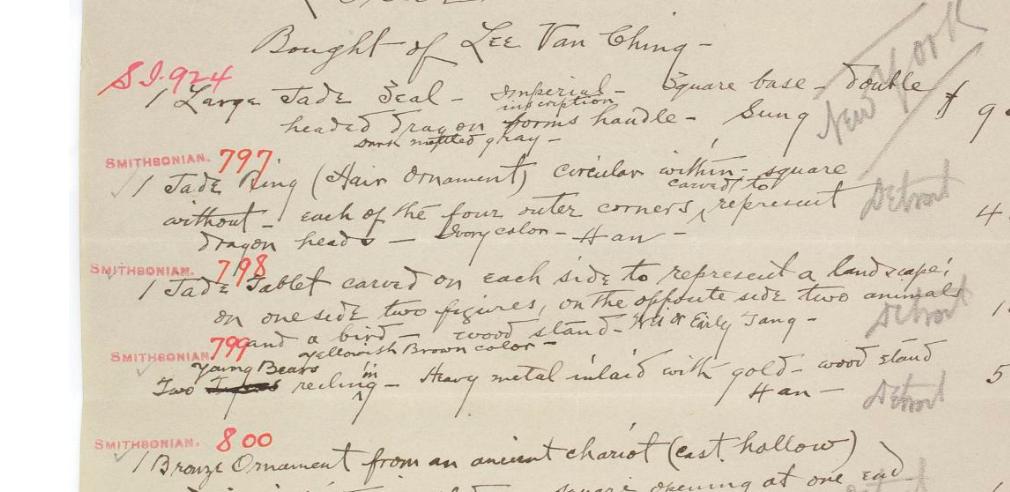 Bought of Lee Van Ching -
S.I. 924
1 Large Jade Seal - Imperial inscription - Square base - double $ 9
headed dragon forms handle - Sung New York
dark mottled gray -
SMITHSONIAN. 797
1 Jade Ring (Hair Ornament) circular within - square
without - each of the four outer corners carved to represent Detroit 4
dragon heads - Ivory color - Han -
SMITHSONIAN. 798
1 Jade Tablet carved on each side to represent a landscape;
on one side two figures, on the opposite side two animals 1
and a bird wood stand - Wei or Early Tang - Detroit
Yellowish Brown color -
SMITHSONIAN 799
Young Bears
Two reclining - Heavy metal inlaid with gold - wood stand 5
Han - Detroit
SMITHSONIAN. 800
1 Bronze Ornament from an ancient chariot (cast hollow)
square opening at one end